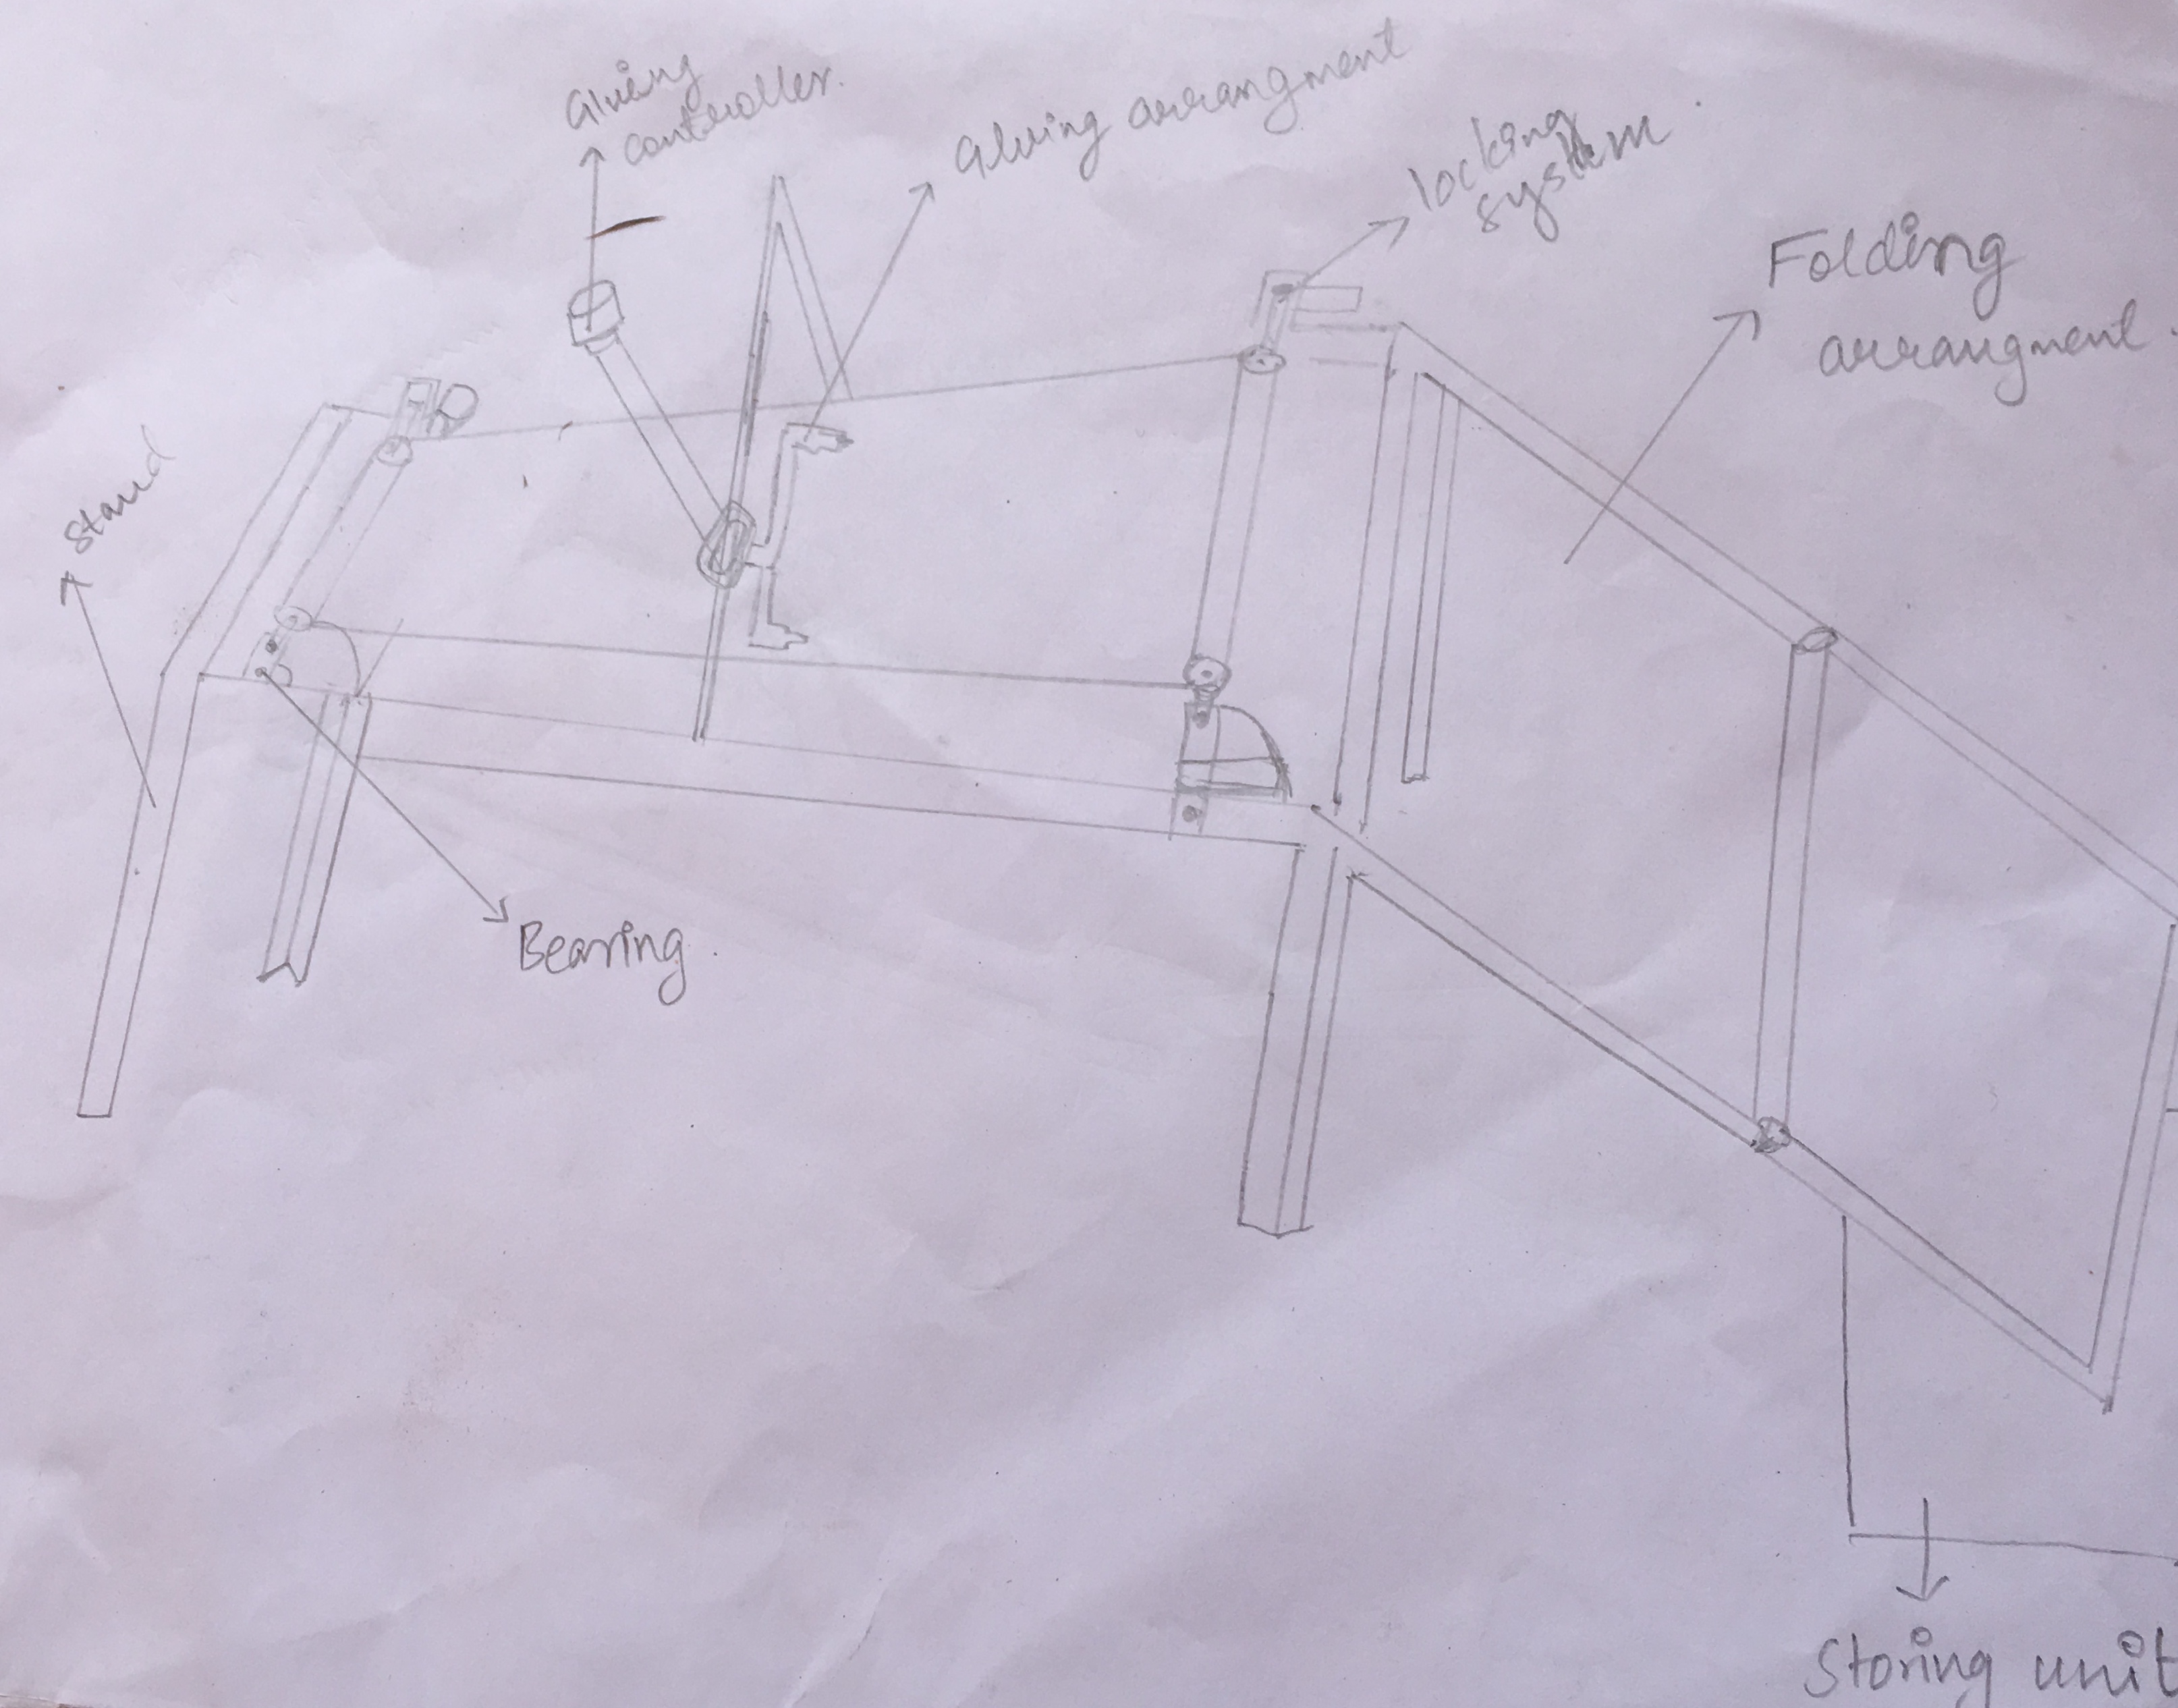 Gluing
controller.
Gluing arrangment
locking
system
Folding
arrangment.
Stand
Bearing.
Storing unit